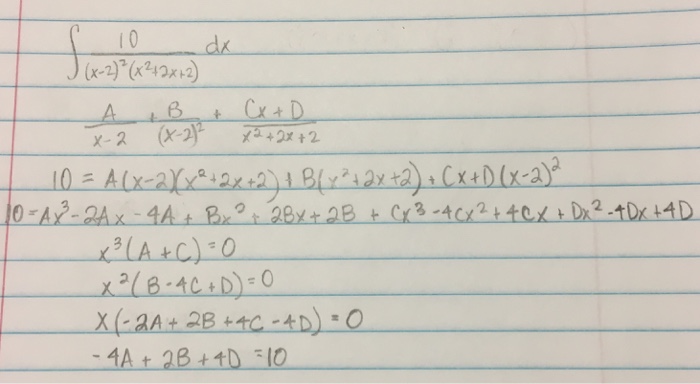 ∫ 10/((x-2)²(x²+2x+2)) dx
A/(x-2) + B/(x-2)² + (Cx+D)/(x²+2x+2)
10 = A(x-2)(x²+2x+2) + B(x²+2x+2) + Cx+D(x-2)²
10 = Ax³-2Ax-4A + Bx²+2Bx+2B + Cx³-4Cx²+4Cx+Dx²-4Dx+4D
x³(A+C)=0
x²(B-4C+D)=0
x(-2A+2B+4C-4D)=0
-4A+2B+4D=10